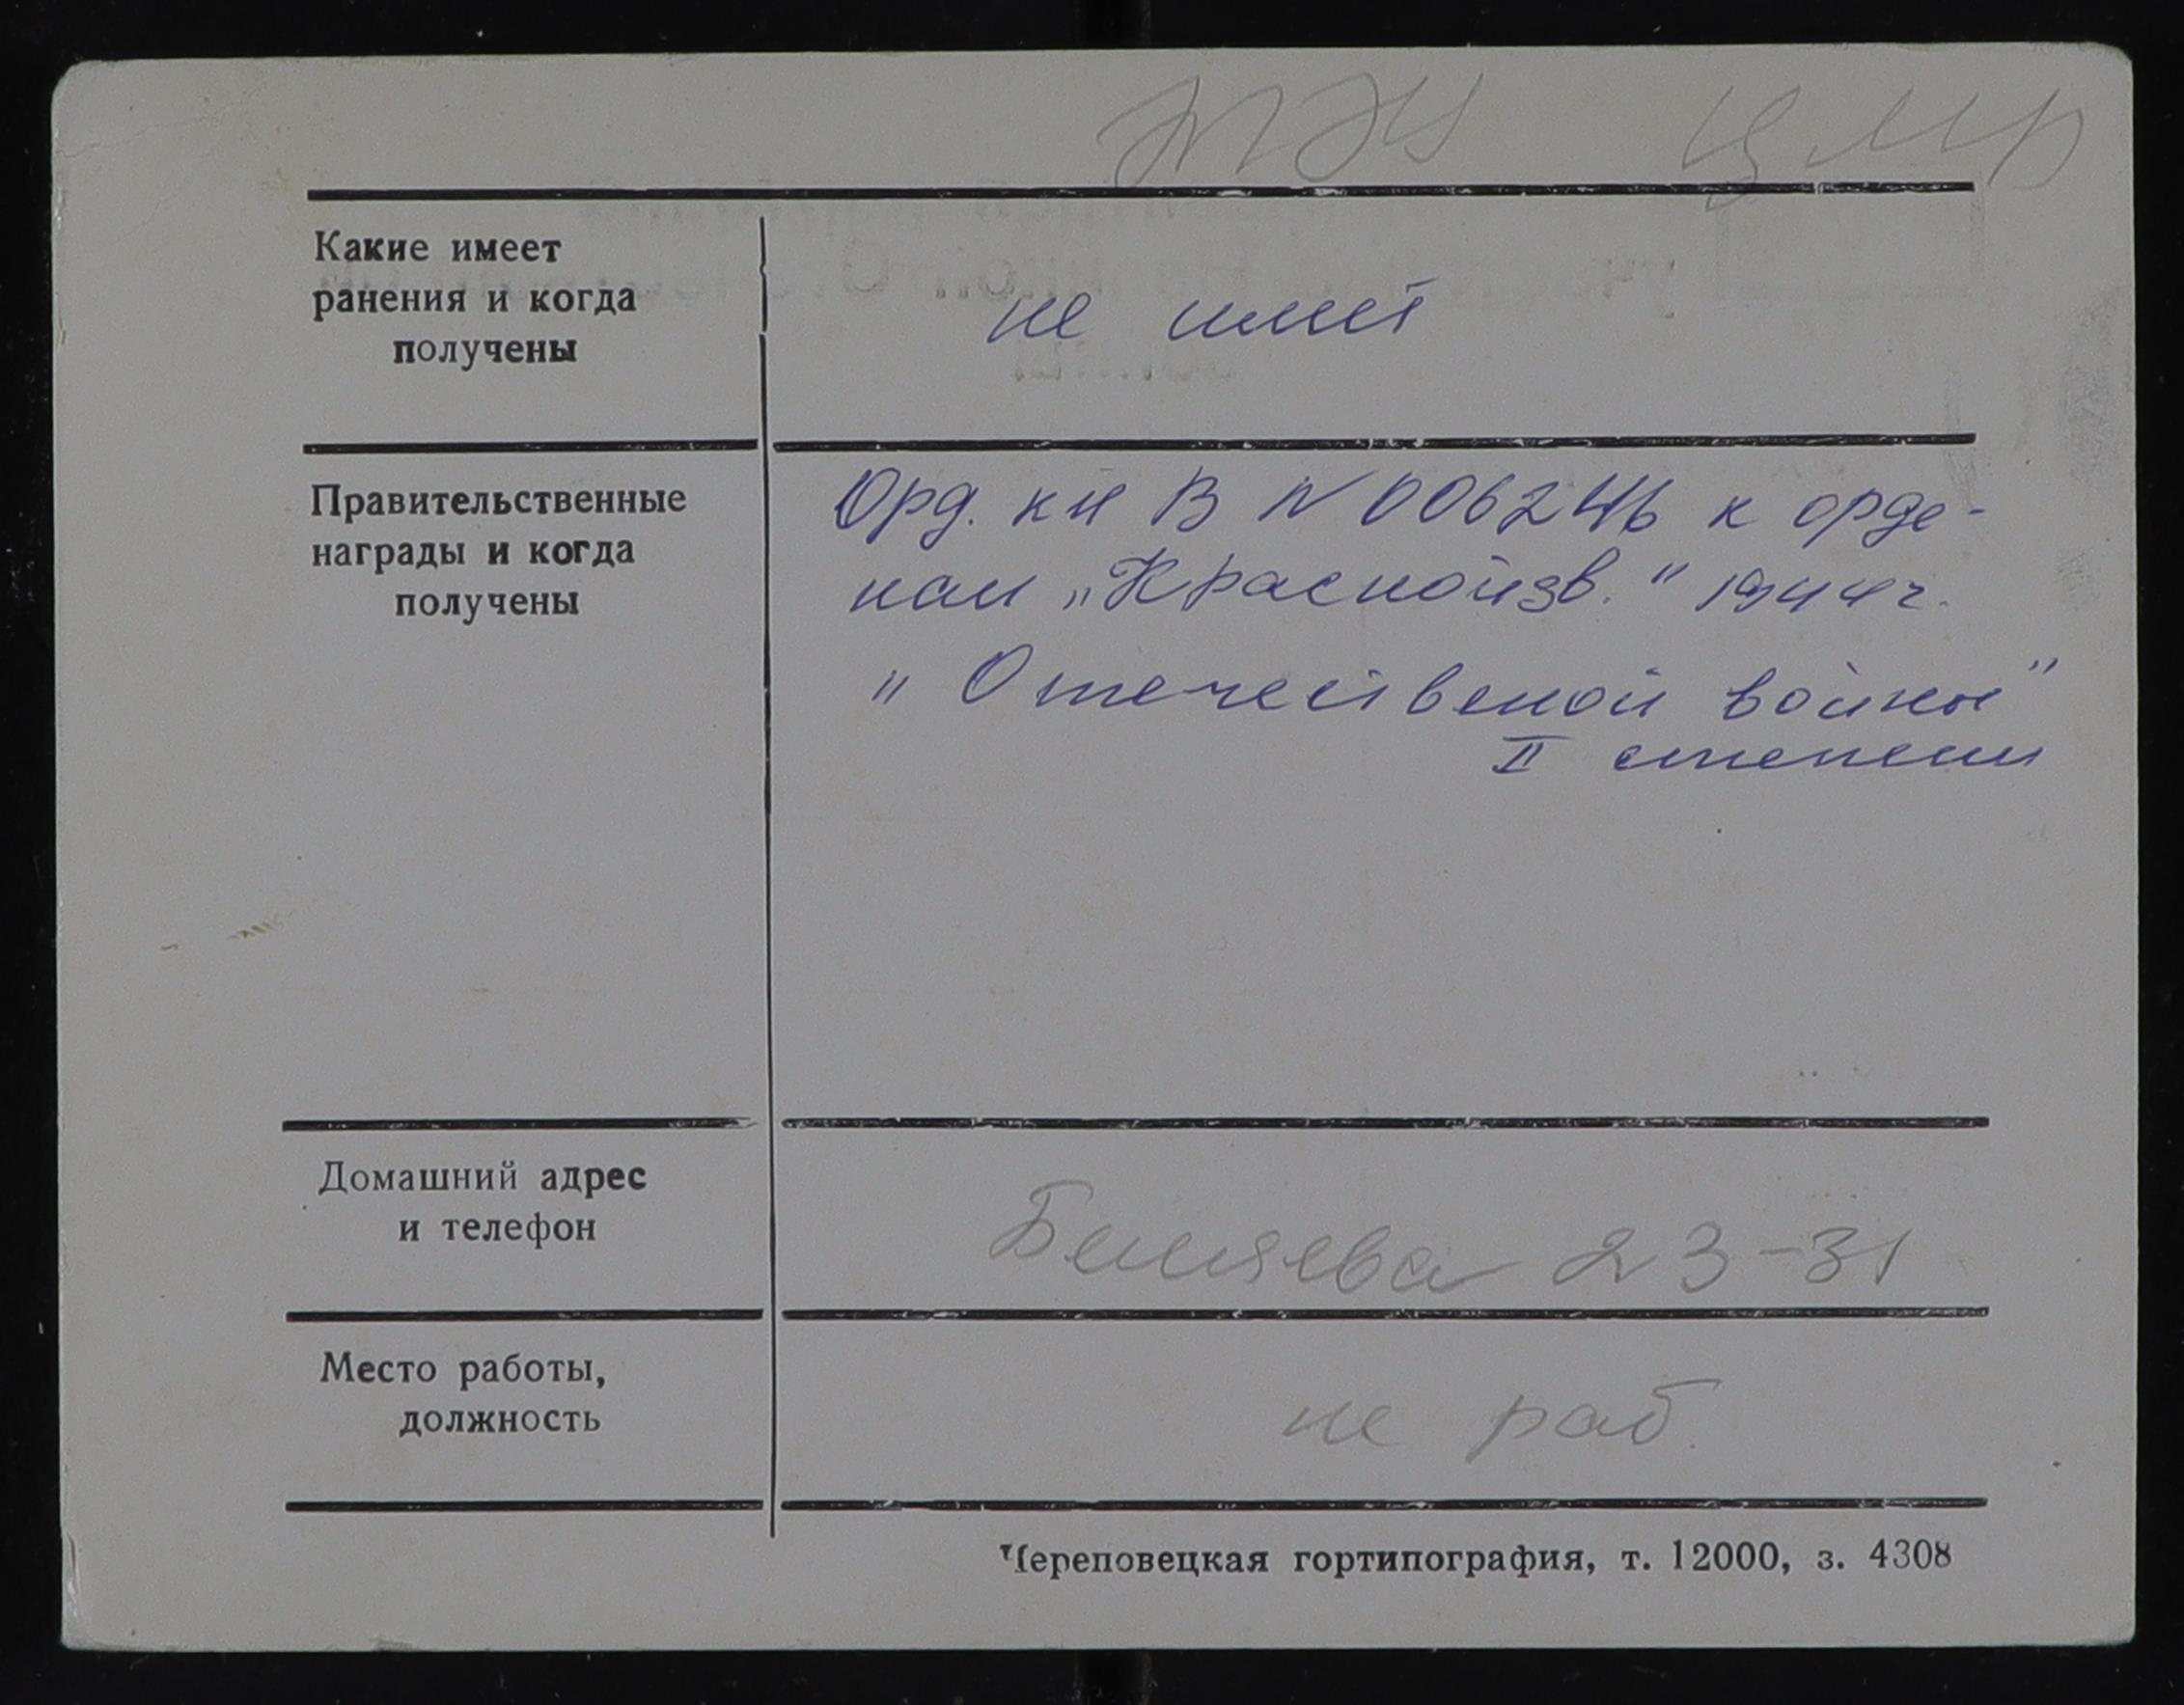 ЖЭУ
Какие имеет
ранения и когда
получены
не имеет
Правительственные
награды и когда
получены
Орд. кн В N 006246 к орде-
нам „Краснойзв." 1944 г.
" Отечественой войны"
II степени
Домашний адрес
и телефон
Беляева 23-31
Место работы,
должность
не раб.
Череповецкая гортипография, т. 12000, з. 4308